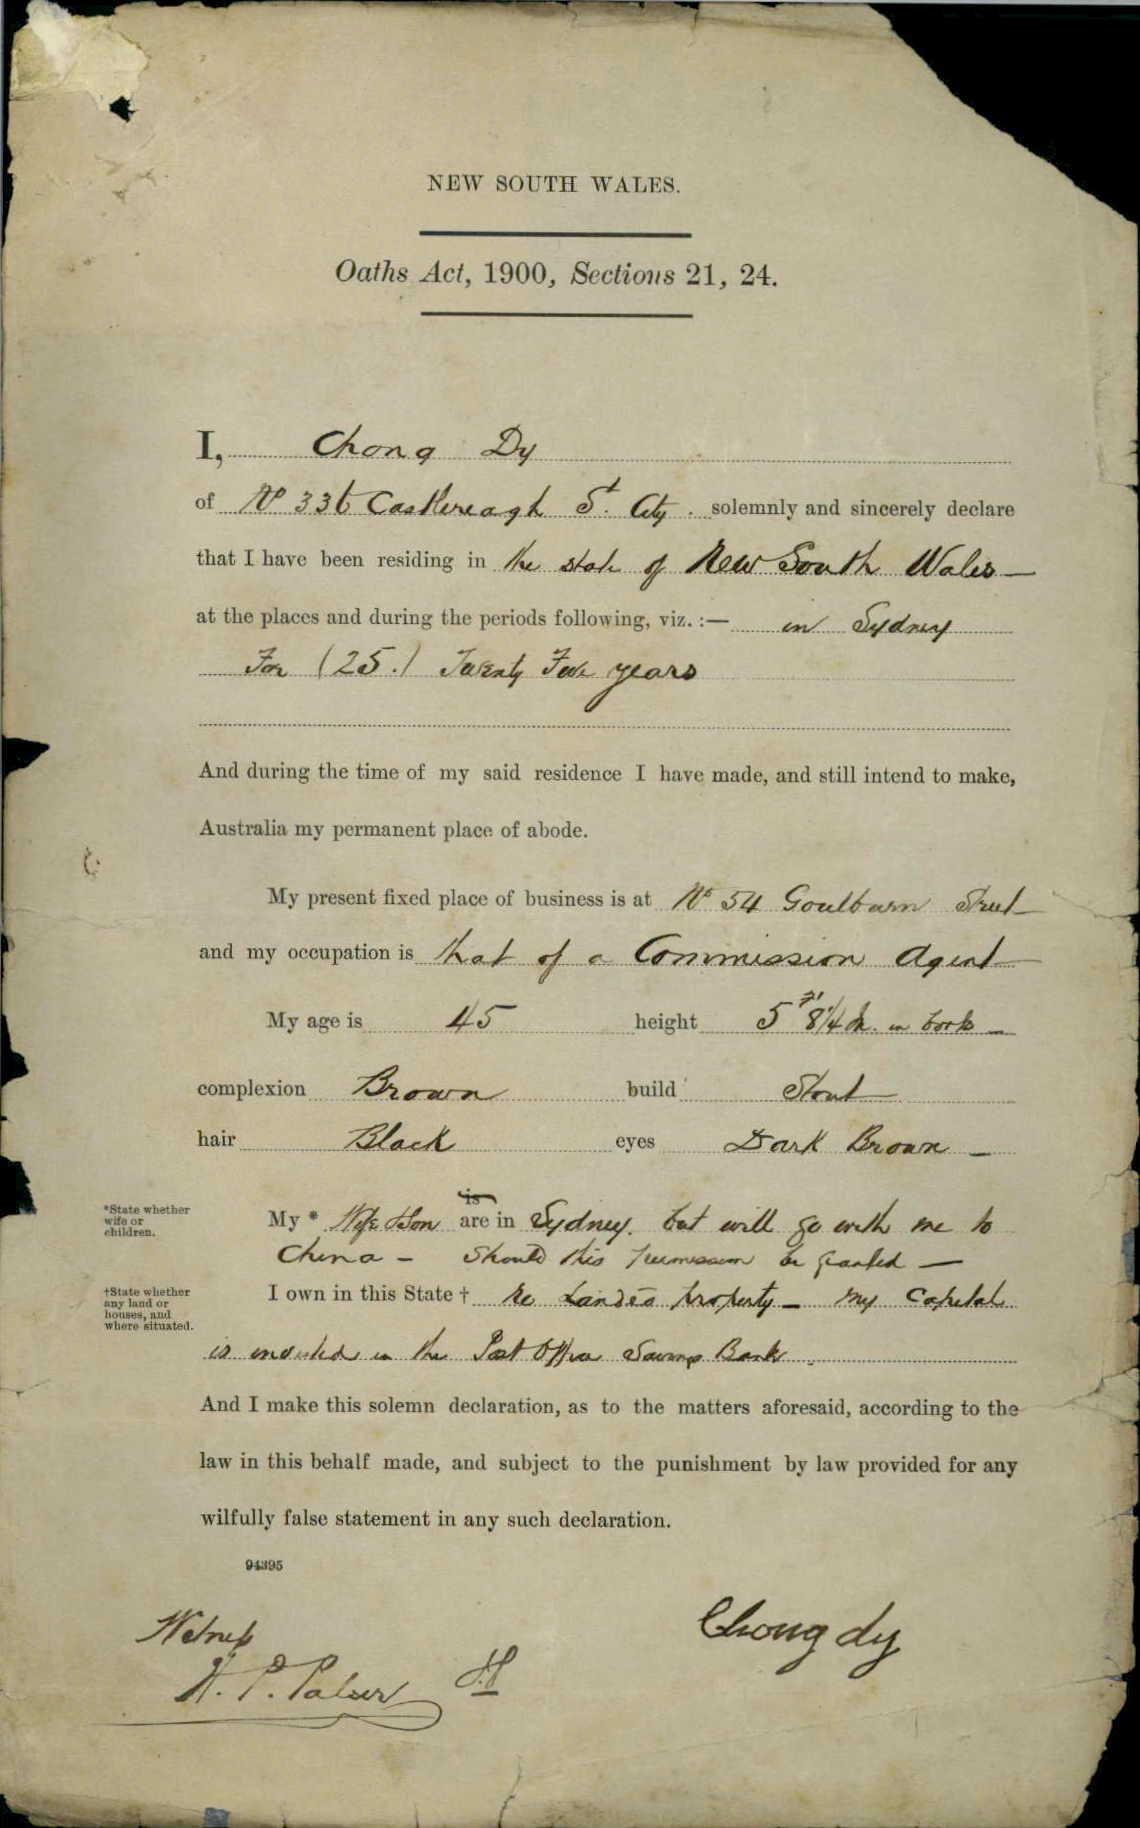 NEW SOUTH WALES.
Oaths Act, 1900, Sections 21, 24.
I, Chong Dy
of No 336 Castlereagh St. City. solemnly and sincerely declare
that I have been residing in the state of New South Wales —
at the places and during the periods following, viz. :— in Sydney
For (25.) Twenty Five years
And during the time of my said residence I have made, and still intend to make,
Australia my permanent place of abode.
My present fixed place of business is at No 54 Goulburn Street
and my occupation is that of a Commission Agent
My age is 45 height 5 ft 8 1/4 in. in boots —
complexion Brown build Stout
hair Black eyes Dark Brown —
*State whether
wife or
children.
is
My * Wife & Son are in Sydney. but will go with me to
China — Should this permission be granted —
†State whether
any land or
houses, and
where situated.
I own in this State † no Landed property — my Capital
is invested in the Post Office Savings Bank.
And I make this solemn declaration, as to the matters aforesaid, according to the
law in this behalf made, and subject to the punishment by law provided for any
wilfully false statement in any such declaration.
94395
Witness
Chong dy
P.